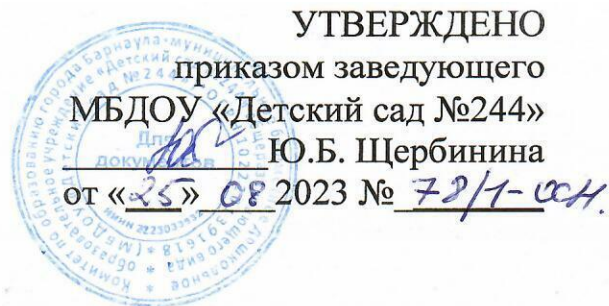 УТВЕРЖДЕНО
приказом заведующего
МБДОУ «Детский сад №244»
Ю.Б. Щербинина
от «25» 08 2023 № 78/1-осн.
Для
документов